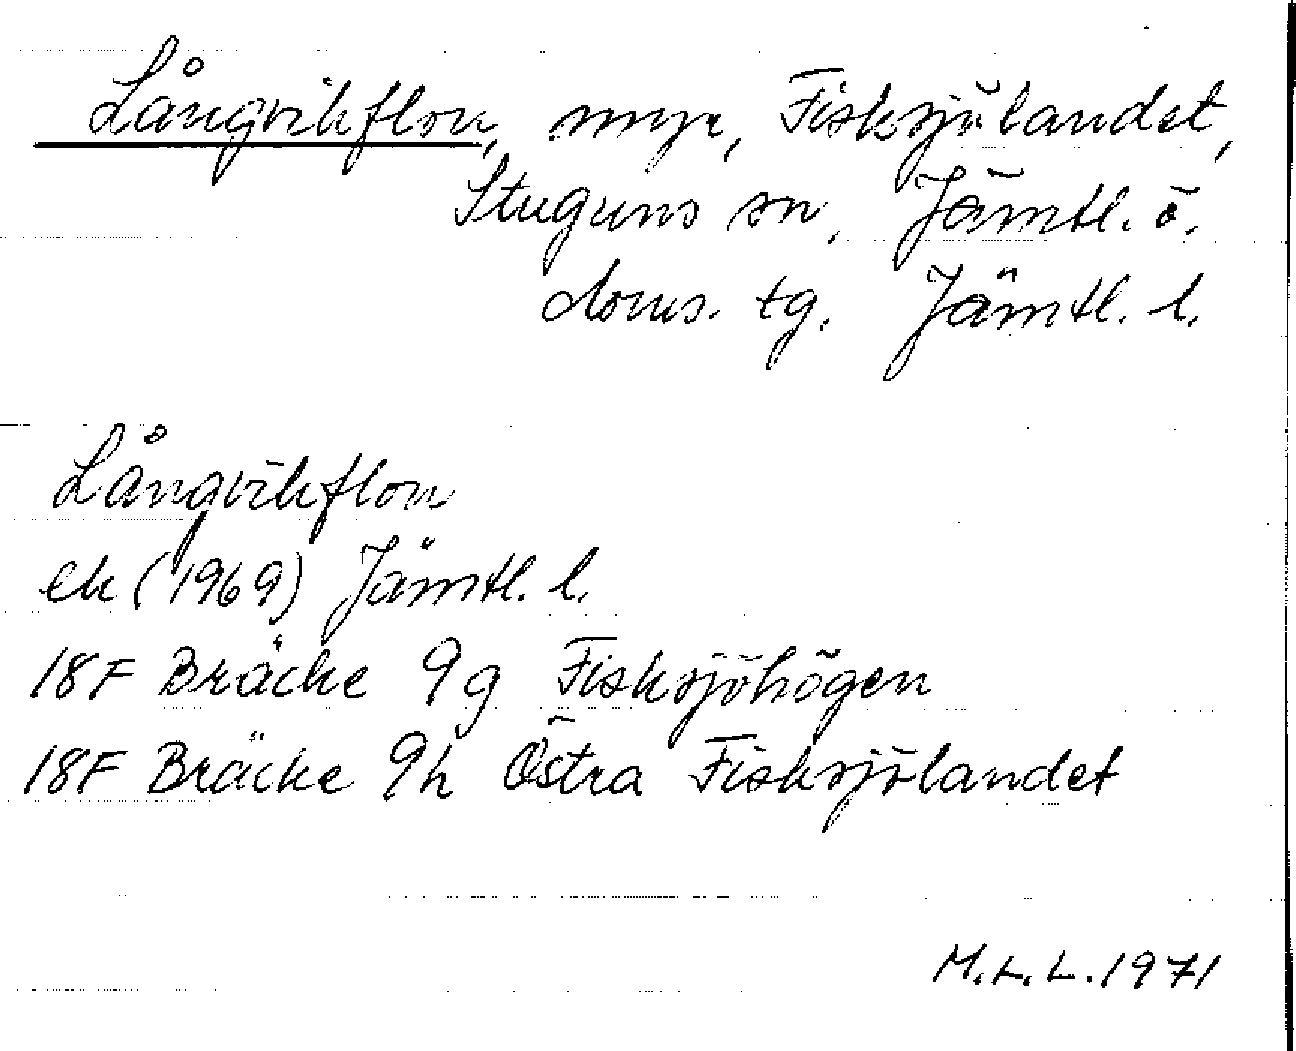 Långvikflon, myr, Fisksjölandet,
Stuguns sn, Jämtl. ö.
doms. tg. Jämtl. l.
Långvikflon
ek (1969) Jämtl. l.
18F Bräcke 9g Fisksjöhögen
18F Bräcke 9h Östra Fisksjölandet
M.L.L. 1971